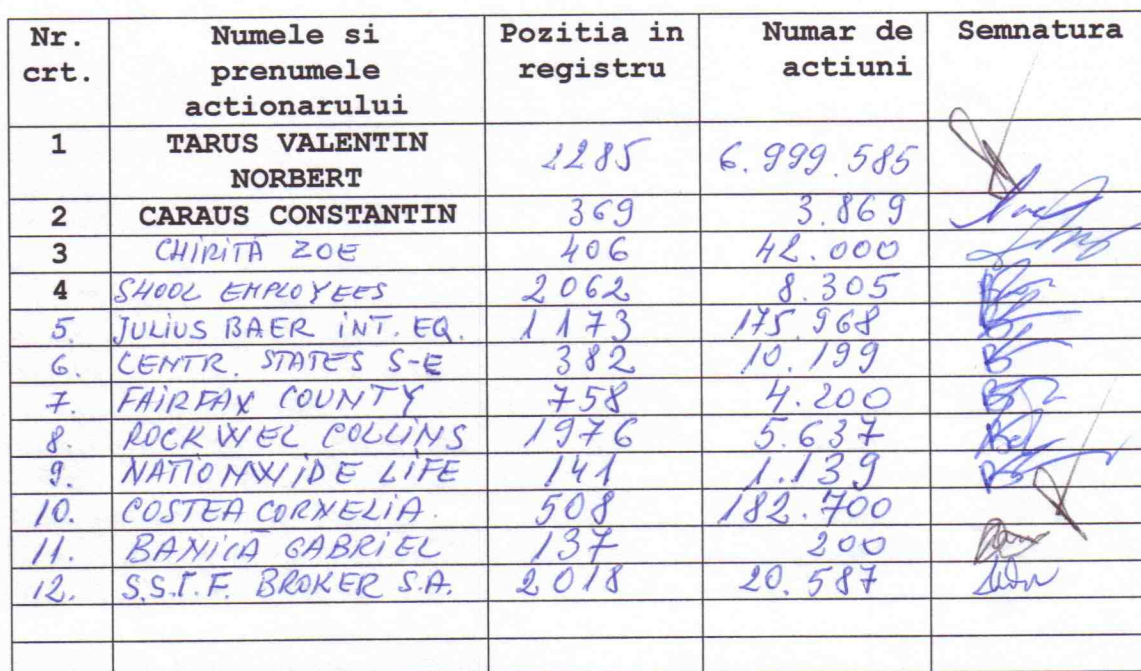 Nr. crt. Numele si prenumele actionarului Pozitia in registru Numar de actiuni Semnatura
1 TARUS VALENTIN NORBERT 2285 6.999.585
2 CARAUS CONSTANTIN 369 3.869
3 CHIRITĂ ZOE 406 42.000
4 SHOOL EMPLOYEES 2062 8.305
5. JULIUS BAER INT. EQ. 1173 175.968
6. CENTR. STATES S-E 382 10.199
7. FAIRFAX COUNTY 758 4.200
8. ROCKWEL COLLINS 1976 5.637
9. NATIONWIDE LIFE 141 1.139
10. COSTEA CORNELIA. 508 182.700
11. BANICĂ GABRIEL 137 200
12. S.S.I.F. BROKER S.A. 2018 20.587